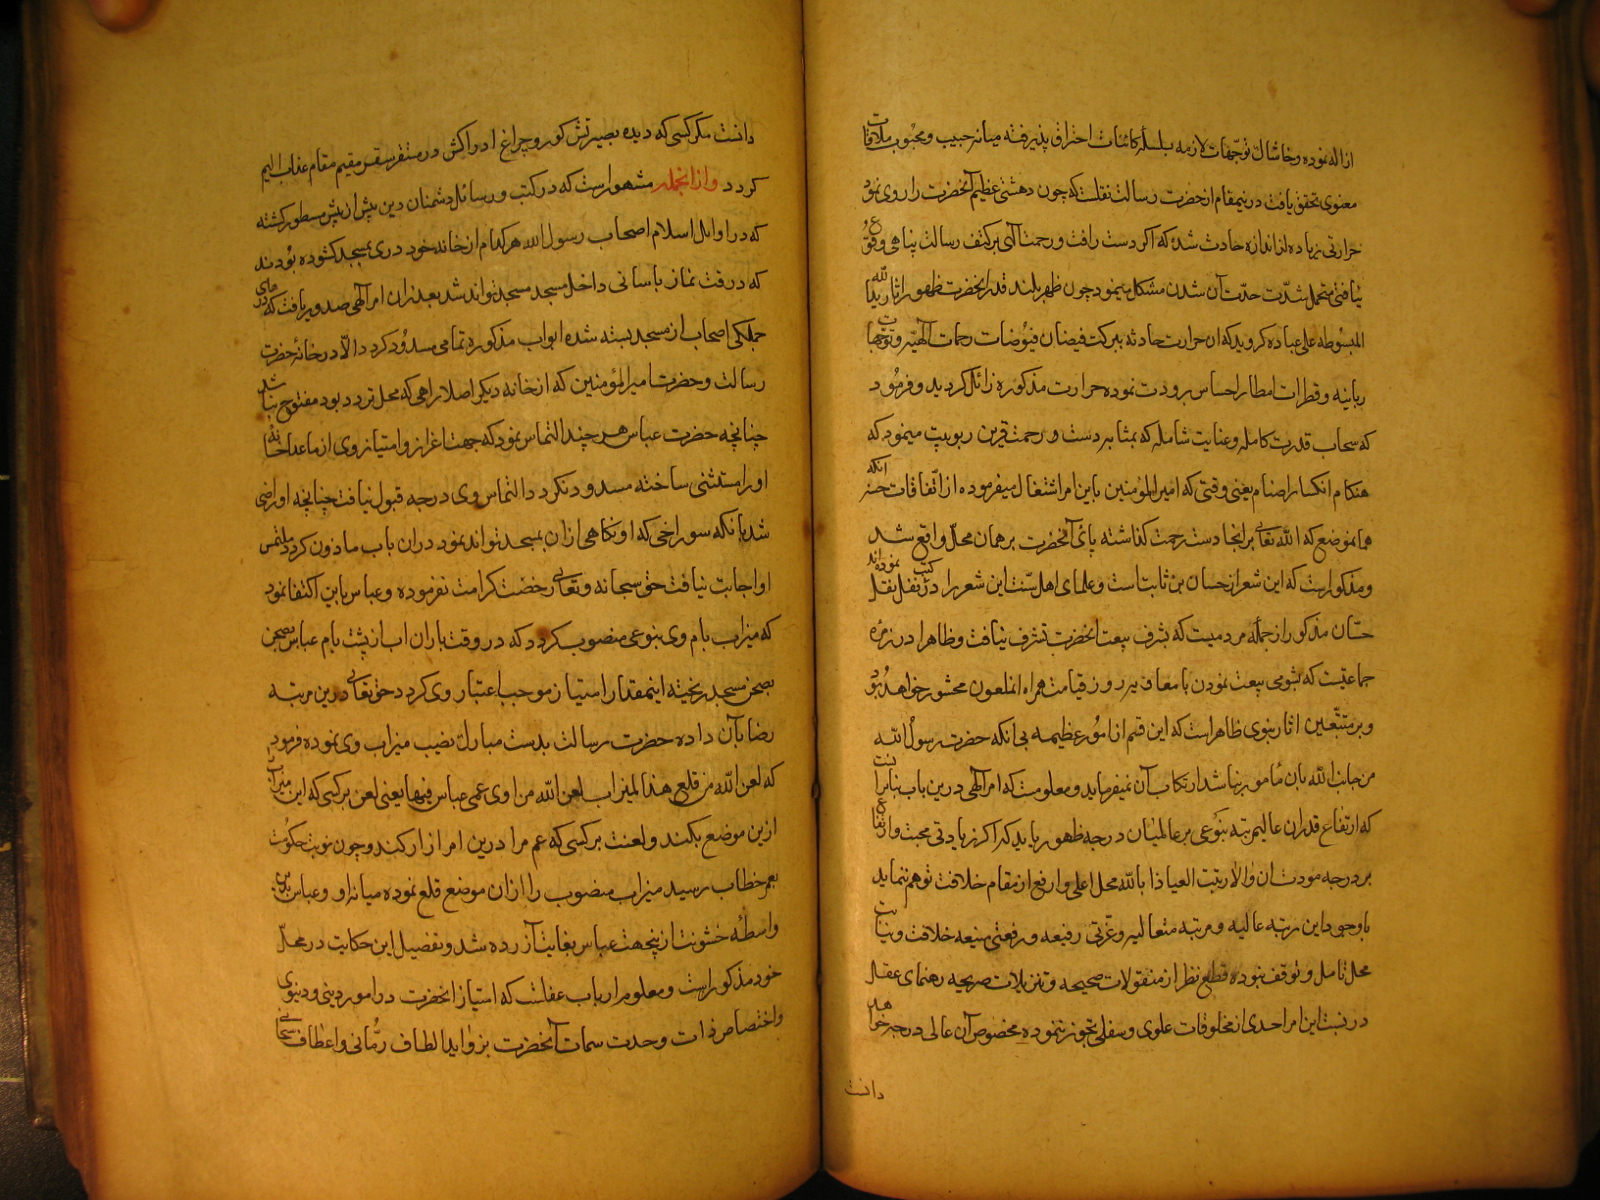 ازاله نموده وخاشاک توجهات لازمه بسلسله کائنات احتراق پذیرفته میانه حبیب ومحبوب ملاقات
معنوی تحقق یافت درینمقام از حضرت رسالت نقلست که چون دهشتی عظیم آنحضرت را روی نمود
حرارتی زیاده از اندازه حادث شد که اگر دست رافت ورحمت الهی بر کتف رسالت پناهی وقوع
نیافتی متحمل شدت حدت آن شدن مشکل مینمود چون ظهر بلند قدر آنحضرت ظهور اثار ید الله
المبسوطه علی عباده کردید که ان حرارت حادثه ببرکت فیضان فیوضات رحمات الهیه وتوجهات
ربانیه وقطرات امطار احساس برودت نموده حرارت مذکوره زائل کردید وفرمود
که سحاب قدرت کامله وعنایت شامله که بمثابه دست ورحمت قرین ربوبیت مینمود که
هنکام انکسار اصنام یعنی وقتی که امیر المؤمنین باین امر اشتغال میفرموده از اتفاقات حسنه انکه
همانموضع که الله تعالی بر انجا دست رحمت کذاشته پای آنحضرت بر همان محل واقع شد
ومذکور است که این شعر از حسان بن ثابتست وعلمای اهل سنت این شعر را در کتب نقل نقل نموده اند
حسان مذکور از جمله مردمیست که بشرف بیعت انحضرت تشرف نیافت وظاهرا در زمره
جماعتیست که بشومی بیعت نمودن با معاویه روز قیامت همراه انملعون محشور خواهد بود
وبر متتبعین اثار نبوی ظاهر است که این قسم از امور عظیمه بی انکه حضرت رسول الله
من جانب الله بان مامور نباشد ارتکاب آن نمیفرماید ومعلومست که امر الهی درین باب بنابر انست
که ارتفاع قدر ان عالیمرتبه بنوعی بر عالمیان درجه ظهور یابد که اکر زیادتی محبت وارتفاع
بر درجه مودت ان والا رتبت العیاذا بالله محل اعلی وارفع از مقام خلافت توهم نماید
باوجود این رتبه عالیه ومرتبه متعالیه وعزتی رفیعه ورفعتی منیعه خلافت ونیابت
محل تامل وتوقف نبوده قطع نظر از منقولات صحیحه وتنزیلات صریحه رهنمای عقل
در نسبت این امر احدی از مخلوقات علوی وسفلی تجویز ننموده مخصوص آن عالی درجه خواهد
دانست
دانست مکر کسی که دیده بصیرتش کور وچراغ ادراکش در مستقر سقر مقیم مقام عذاب الیم
کردد وازانجمله مشهور است که در کتب ورسائل دشمنان دین بیش از پیش مسطور کشته
که در اوایل اسلام اصحاب رسول الله هر کدام از خانه خود دری بمسجد کشوده بودند
که در وقت نماز باسانی داخل مسجد تواند شد بعد زان امر الهی صدور یافت که درهای
جملکی اصحاب از مسجد بسته شده ابواب مذکوره تمامی مسدود کردد الا در خانه حضرت
رسالت وحضرت امیر المؤمنین که از خانه دیکر اصلا راهی که محل تردد بود مفتوح نباشد
چنانچه حضرت عباس هر چند التماس نمود که جهت اعزاز وامتیاز وی از ماعدا خانه
اورا مستثنی ساخته مسدود نکردد التماس وی درجه قبول نیافت چنانچه او راضی
شد بانکه سوراخی که او نکاهی از ان بمسجد تواند نمود دران باب ماذون کردد ملتمس
او اجابت نیافت حق سبحانه وتعالی رخصت کرامت نفرموده وعباس باین اکتفا نمود
که میزاب بام وی بنوعی منصوب کردد که در وقت باران اب از پشت بام عباس بصحن
بصحن مسجد ریخته اینمقدار امتیاز موجب اعتبار وی کردد حق تعالی درین مرتبه
رضا بآن داده حضرت رسالت بدست مبارک نصب میزاب وی نموده فرمود
که لعن الله من قلع هذا المیزاب لعن الله من اوی عمی عباس فیها یعنی لعن بر کسی که این میزاب
ازین موضع بکند ولعنت بر کسی که عم مرا درین امر ازار کند وچون نوبت حکومت
بعمر خطاب رسید میزاب منصوب را ازان موضع قلع نموده میانه او وعباس بدین
واسطه خشونت ازینجهت عباس بغایت آزرده شد وتفصیل این حکایت در محل
خود مذکور است ومعلوم ارباب عقلست که امتیاز انحضرت در امور دینی ودنیوی
واختصاص ذات وحدت سمات آنحضرت بزواید الطاف ربانی واعطاف سبحانی